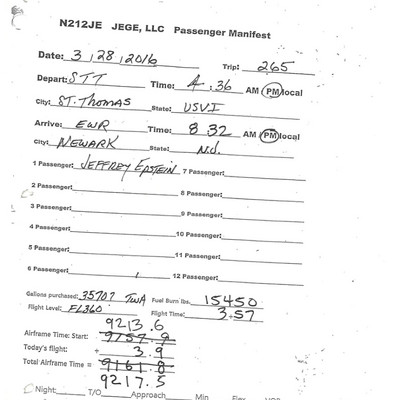 N212JE JEGE, LLC Passenger Manifest
Date: 3 / 28 / 2016 Trip: 265
Depart: STT Time: 4 : 36 AM PM local
City: ST. THOMAS State: USVI
Arrive: EWR Time: 8:32 AM PM local
City: NEWARK State: N.J.
1 Passenger: JEFFREY EPSTEIN 7 Passenger:
2 Passenger: 8 Passenger:
3 Passenger: 9 Passenger:
4 Passenger: 10 Passenger:
5 Passenger: 11 Passenger:
6 Passenger: 12 Passenger:
Gallons purchased: 35707 Fuel Burn lbs. 15450
Flight Level: FL360 Flight Time: 3.57
9213.6
Airframe Time: Start: 9157.9
Today's flight: + 3.9
Total Airframe Time = 9161.8
9217.5
Night: T/O Approach Min Flex